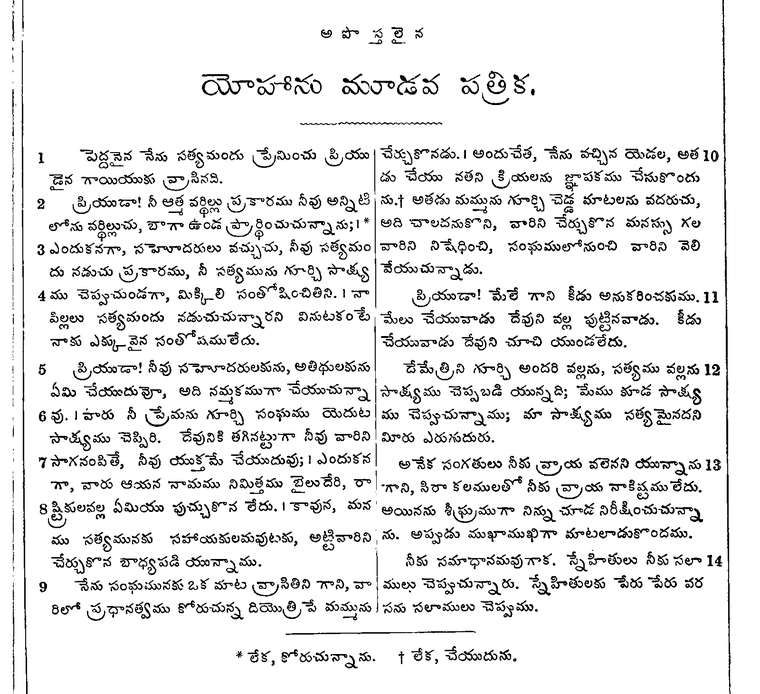 అపొస్తలైన
యోహాను మూడవ పత్రిక.
1 పెద్దనైన నేను సత్యమందు ప్రేమించు ప్రియు
డైన గాయియుకు వ్రాసినది.
2 ప్రియుడా! నీ ఆత్మ వర్థిల్లు ప్రకారము నీవు అన్నిటి
లోను వర్థిల్లుచు, బాగా ఉండ ప్రార్థించుచున్నాను;।*
3 ఎందుకనగా, సహెూదరులు వచ్చుచు, నీవు సత్యమం
దు నడుచు ప్రకారము, నీ సత్యమును గూర్చి సాక్ష్య
4 ము చెప్పుచుండగా, మిక్కిలి సంతోషించితిని.। నా
పిల్లలు సత్యమందు నడుచుచున్నారని వినుటకంటే
నాకు ఎక్కువైన సంతోషములేదు.
5 ప్రియుడా! నీవు సహెూదరులకును, అతిథులకును
ఏమి చేయుదువో, అది నమ్మకముగా చేయుచున్నా
6 వు.। వారు నీ ప్రేమను గూర్చి సంఘము యెదుట
సాక్ష్యము చెప్పిరి. దేవునికి తగినట్టుగా నీవు వారిని
7 సాగనంపితే, నీవు యుక్తమే చేయుదువు;। ఎందుకన
గా, వారు ఆయన నామము నిమిత్తము బైలుదేరి, రా
8 ష్ట్రికులవల్ల ఏమియు పుచ్చుకొన లేదు.। కావున, మన
ము సత్యమునకు సహాయకులమవుటకు, అట్టివారిని
చేర్చుకొన బాధ్యపడి యున్నాము.
9 నేను సంఘమునకు ఒక మాట వ్రాసితిని గాని, వా
రిలో ప్రధానత్వము కోరుచున్న దియొత్రిపే మమ్మును
చేర్చుకొనడు.। అందుచేత, నేను వచ్చిన యెడల, అత 10
డు చేయు నతని క్రియలను జ్ఞాపకము చేసుకొందు
ను.† అతడు మమ్మును గూర్చి చెడ్డ మాటలను వదరుచు,
అది చాలదనుకొని, వారిని చేర్చుకొన మనస్సు గల
వారిని నిషేధించి, సంఘములోనుంచి వారిని వెలి
వేయుచున్నాడు.
ప్రియుడా! మేలే గాని కీడు అనుకరించకుము. 11
మేలు చేయువాడు దేవుని వల్ల పుట్టినవాడు. కీడు
చేయువాడు దేవుని చూచి యుండలేదు.
దేమేత్రిని గూర్చి అందరి వల్లను, సత్యము వల్లను 12
సాక్ష్యము చెప్పబడి యున్నది; మేము కూడ సాక్ష్య
ము చెప్పుచున్నాము; మా సాక్ష్యము సత్యమైనదని
మీరు ఎరుగుదురు.
అనేక సంగతులు నీకు వ్రాయ వలెనని యున్నాను 13
గాని, సిరా కలములతో నీకు వ్రాయ నాకిష్టములేదు.
అయినను శీఘ్రముగా నిన్ను చూడ నిరీక్షించుచున్నా
ను. అప్పుడు ముఖాముఖిగా మాటలాడుకొందము.
నీకు సమాధానమవుగాక. స్నేహితులు నీకు సలా 14
ములు చెప్పుచున్నారు. స్నేహితులకు పేరు పేరు వర
సను సలాములు చెప్పుము.
* లేక, కోరుచున్నాను. † లేక, చేయుదును.